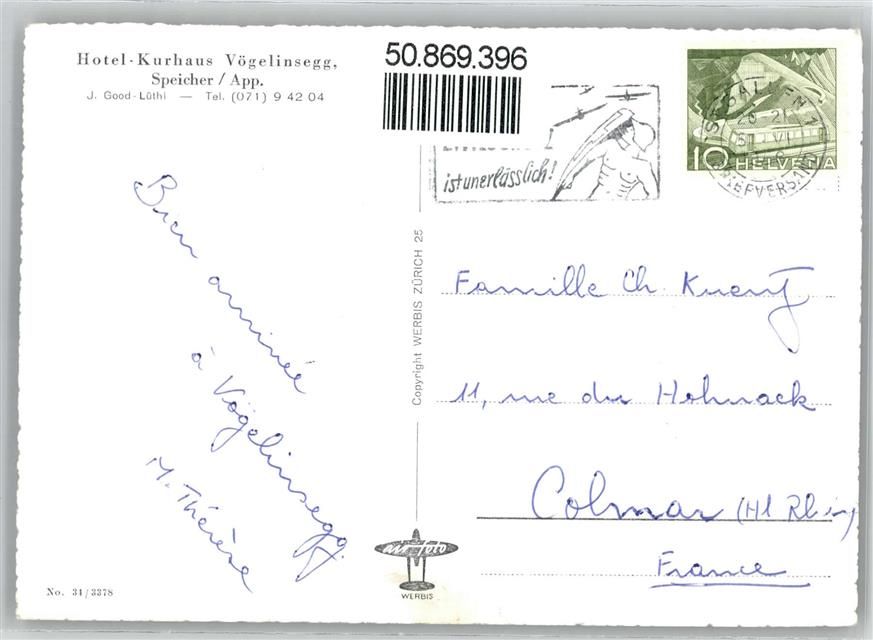 Hotel-Kurhaus Vögelinsegg,
Speicher / App.
J. Good-Lüthi — Tel. (071) 9 42 04
50.869.396
istunerlässlich!
10 HELVETIA
ST. GALLEN 1
BRIEFVERSAND
Bien arrivée
à Vögelinsegg.
M. Thérèse
Copyright WERBIS ZÜRICH 25
Famille Ch. Kuentz
11, rue du Hohnack
Colmar (Ht Rhin)
France
air-foto
WERBIS
No. 31/3378